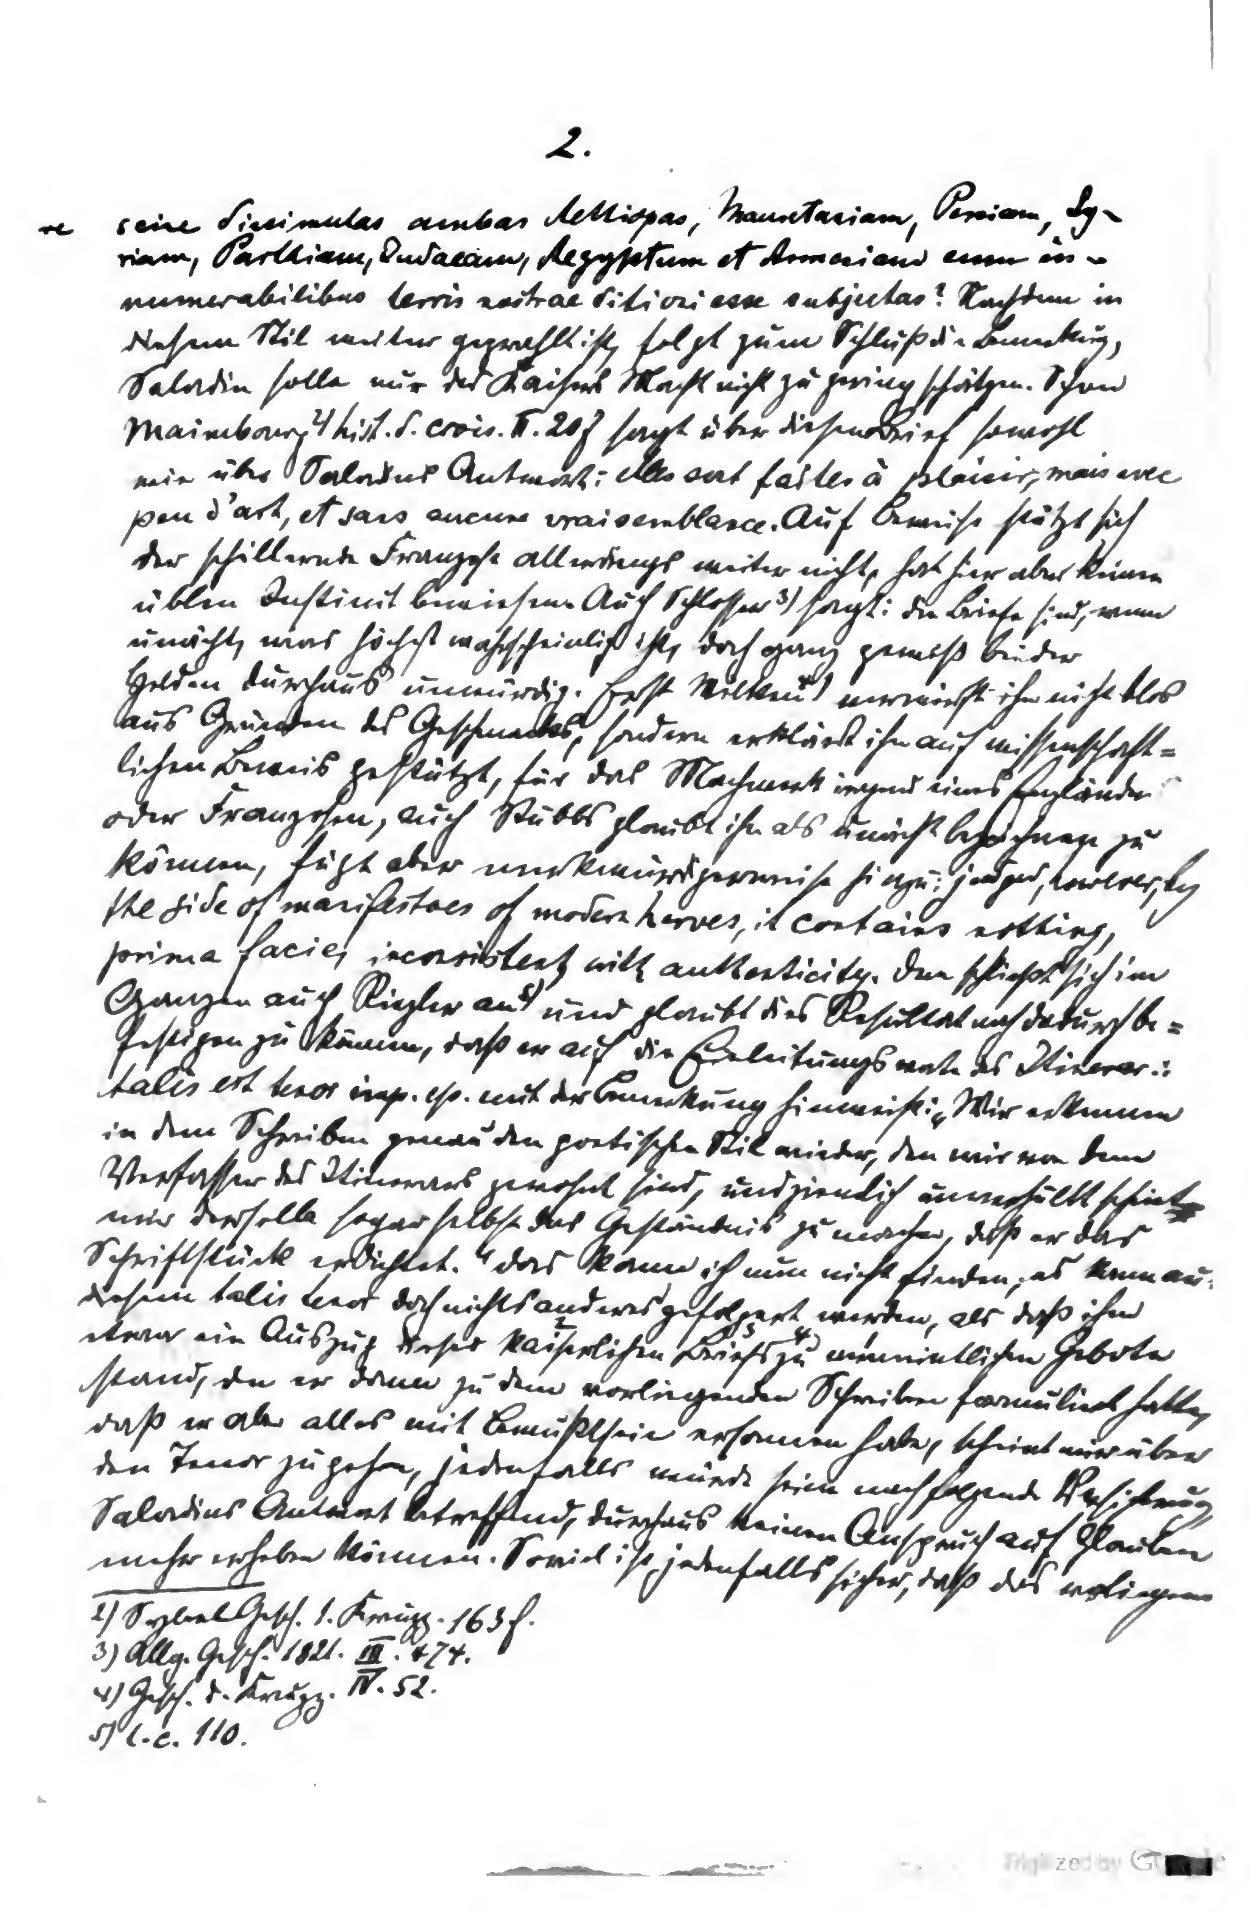 2.
re scire dissimulas ambas Aethiopas, Mauretaniam, Persiam, Sy-
riam, Parthiam, Judaeam, Aegyptum et Armeniam cum in-
numerabilibus terris nostrae ditioni esse subjectas? Nachdem in
diesem Stil weiter geprahlt ist, folgt zum Schluß die Bemerkung,
Saladin solle nur des Kaisers Macht nicht zu gering schätzen. Schon
Maimbourg 2) hist. d. crois. II. 207 sagt über diesen Brief sowohl
wie über Saladins Antwort: elles sont faites à plaisir, mais avec
peu d'art, et sans aucune vraisemblance. Auf Beweise stützt sich
der schillernde Franzose allerdings weiter nicht, hat hier aber keinen
üblen Instinct bewiesen. Auch Schlosser 3) sagt: die Briefe sind, wenn
unächt, was höchst wahrscheinlich ist, doch ganz gewiß beider
Helden durchaus unwürdig. Erst Wilken 4) verwirft ihn nicht blos
aus Gründen des Geschmacks, sondern erklärt ihn auf wissenschaft=
lichen Beweis gestützt, für das Machwerk irgend eines Engländers
oder Franzosen, auch Stubbs glaubt ihn als unächt bezeichnen zu
können, fügt aber merkwürdigerweise hinzu: judged, however, by
the side of manifestoes of modern heroes, it contains nothing,
prima facie, inconsistent with authenticity. Dem schließt sich im
Ganzen auch Riezler an 5) und glaubt dies Resultat noch dadurch be=
festigen zu können, daß er auf die Einleitungsworte des Itinerar.:
talis est tenor imp. ep. mit der Bemerkung hinweist: „Wir erkennen
in dem Schreiben genau den poetischen Stil wieder, den wir von dem
Verfasser des Itinerars gewohnt sind, und ziemlich unverhüllt scheint
mir derselbe sogar selbst das Geständnis zu machen, daß er das
Schriftstück erdichtet." Das kann ich nun nicht finden, es kann aus
diesem talis tenor doch nichts anderes gefolgert werden, als daß ihm
etwa ein Auszug dieses kaiserlichen Briefs zu vermeintlichem Gebote
stand, den er dann zu dem vorliegenden Schreiben formuliert hatte,
daß er aber alles mit Bewußtsein ersonnen habe, scheint mir über
den Tenor zu gehen, jedenfalls würde seine nachfolgende Versicherung
Saladins Antwort betreffend, durchaus keinen Anspruch auf Glauben
mehr erheben können. Soviel ist jedenfalls sicher, daß das vorliegende
2) Sybel Gesch. I. Kreuzz. 163 f.
3) Allg. Gesch. 1821. III. 474.
4) Gesch. d. Kreuzz. IV. 52.
5) l. c. 110.
Digitized by Google